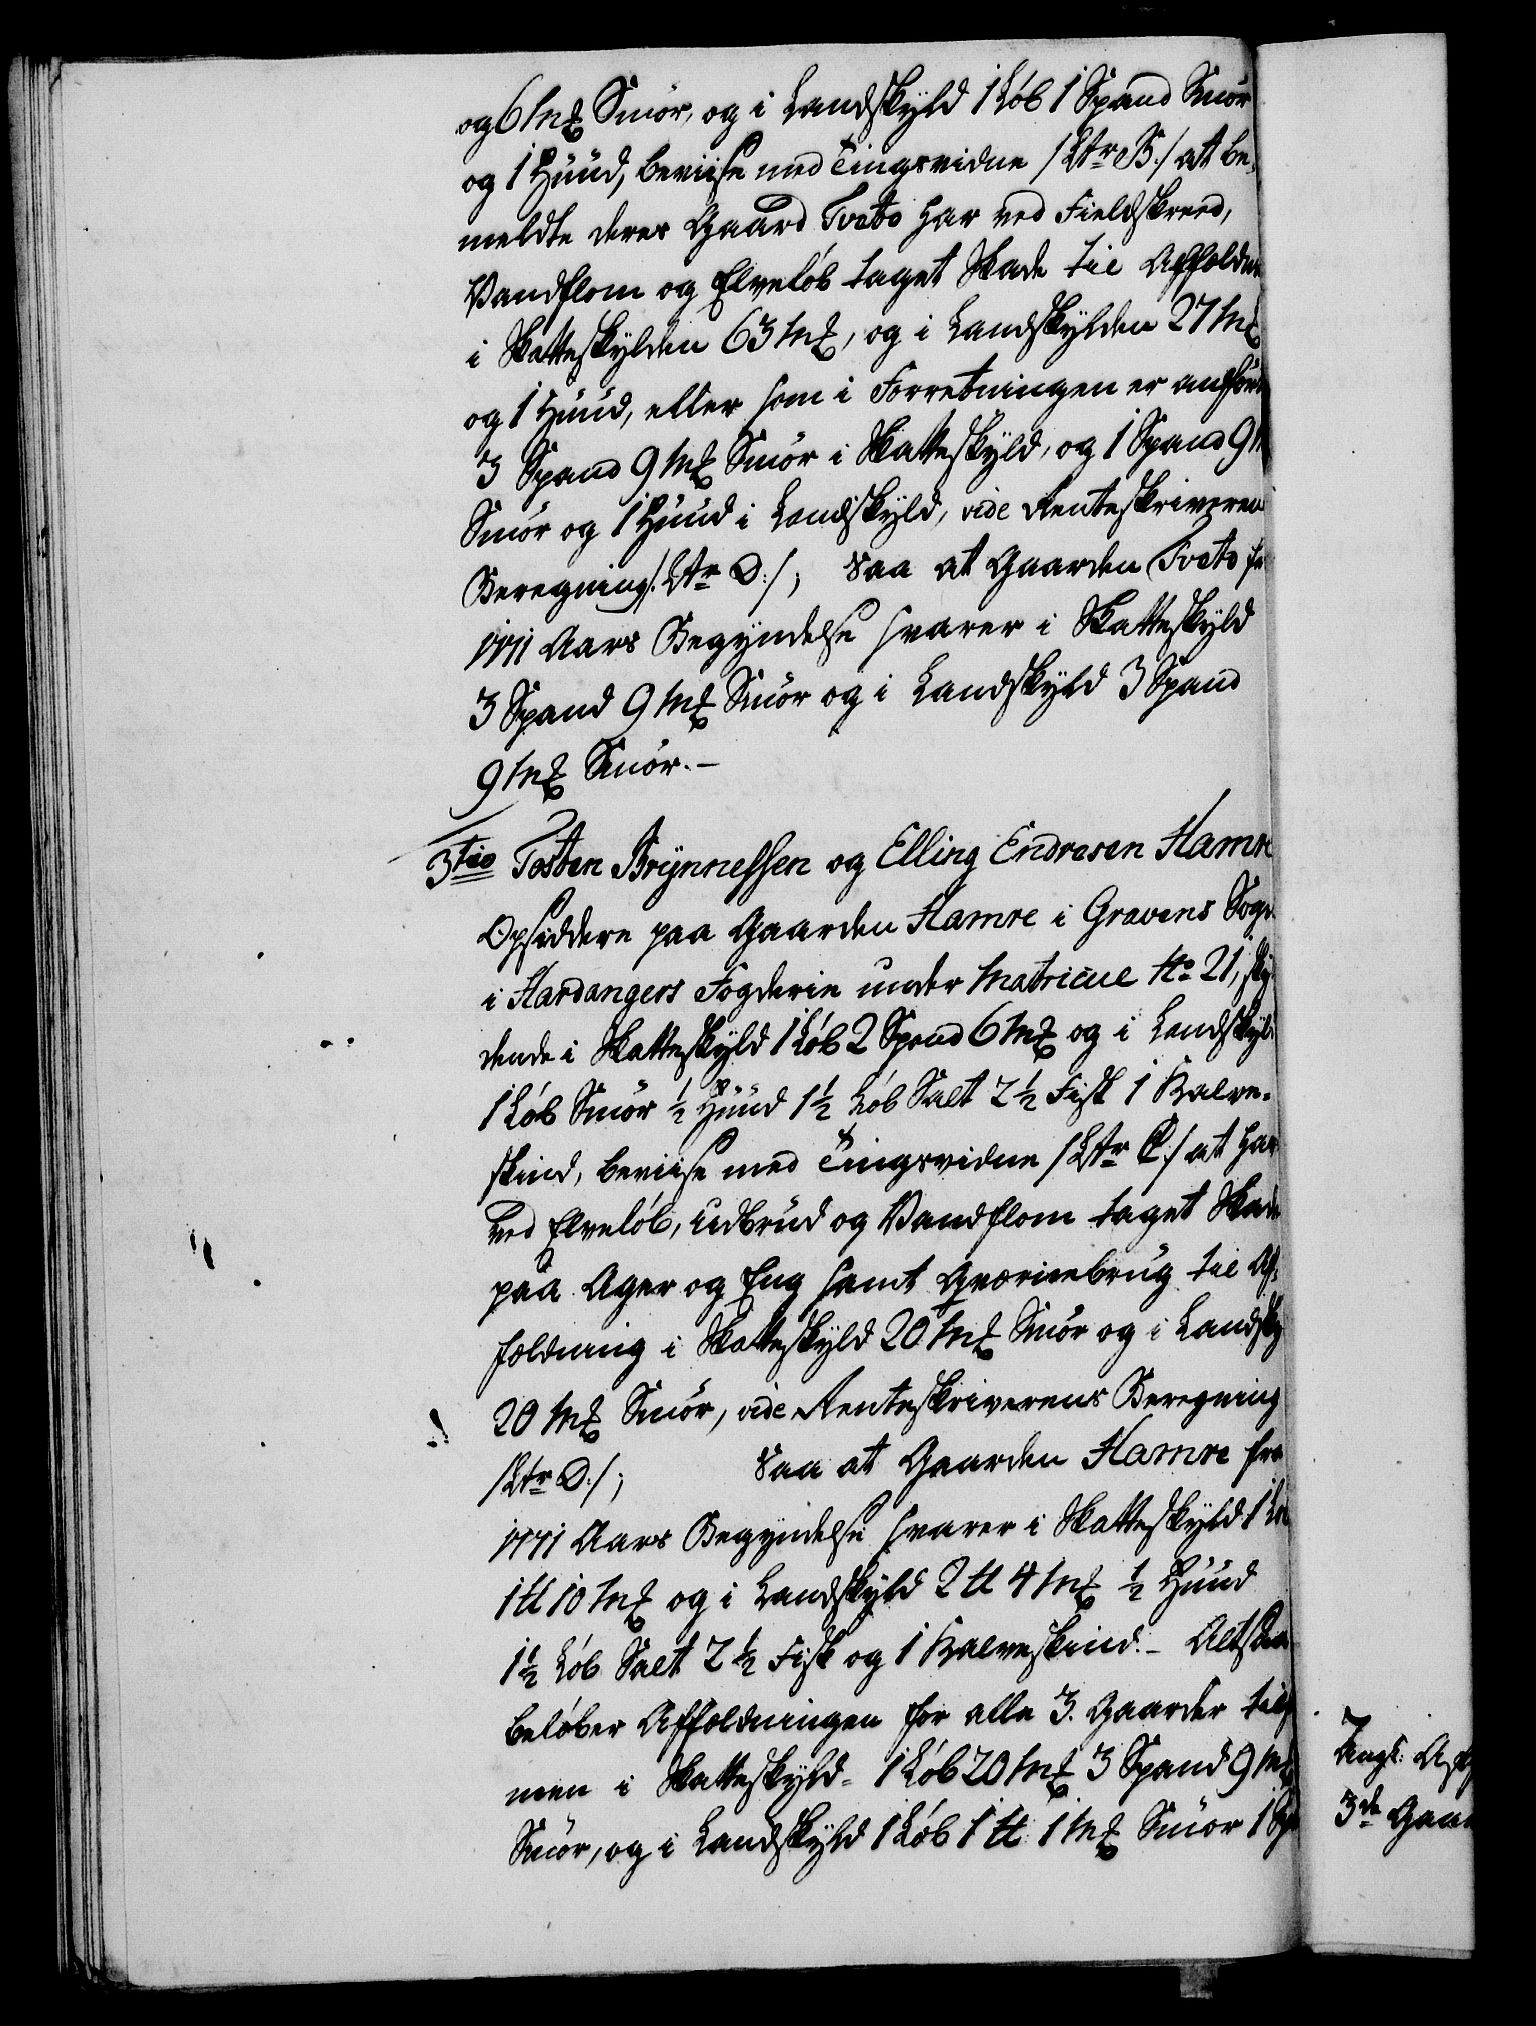 og 6 Mk Smör, og i Landskyld 1 Löb 1 Spand Smör
og 1 Huud, beviise med Tingsvidne /Ltr B./ at be-
meldte deres Gaard Tvete har ved Fieldskreed,
Vandflom og Elvelöb taget Skade til Affoldni
i Skatteskylden 63 Mk, og i Landskylden 27 Mk
og 1 Huud, eller som i Forretningen er anför
3 Spand 9 Mk Smör i Skatteskyld, og 1 Spand 9 M
Smör og 1 Huud i Landskyld, vide Renteskriveren
Beregning /:Ltr D:/; Saa at Gaarden Tvete fr
1771 Aars Begyndelse svarer i Skatteskyld
3 Spand 9 Mk Smör og i Landskyld 3 Spand
9 Mk Smör.-
3tio Tosten Brynnelssen og Elling Endresen Hamre
Opsiddere paa Gaarden Hamre i Gravens Sogn
i Hardangers Fogderie under Matricul No 21, sky
dende i Skatteskyld 1 Löb 2 Spand 6 Mk og i Landskyld
1 Löb Smör ½ Huud 1½ Löb Salt 2½ Fisk 1 Kalve-
skind, beviise med Tingsvidne /Ltr C:/ at har
ved Elvelöb, Udbrud og Vandflom taget Skade
paa Ager og Eng samt Qværnebrug til Af-
foldning i Skatteskyld 20 Mk Smör og i Landsky
20 Mk Smör, vide Renteskriverens Beregning
/Ltr D:/; Saa at Gaarden Hamre fra
1771 Aars Begyndelse svarer i Skatteskyld 1 Löb
1 tt 10 Mk og i Landskyld 2 tt 4 Mk ½ Huud
1½ Löb Salt 2½ Fisk og 1 Kalveskind.- Altsaa
belöber Affoldningen for alle 3. Gaarder tils
men i Skatteskyld - 1 Löb 20 Mk 3 Spand 9 Mk
Smör, og i Landskyld 1 Löb 1 tt 1 Mk Smör 1 Sp
Angl: Af
3de Gaar